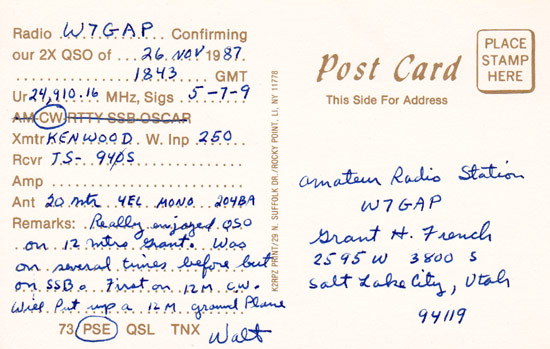 Radio W7GAP Confirming
our 2X QSO of 26 NOV 1987
1843 GMT
Ur 24,910.16 MHz, Sigs 5-7-9
AM-CW-RTTY-SSB-OSCAR
Xmtr KENWOOD W. Inp 250
Rcvr TS-940S
Amp
Ant 20 mtr 4EL MONO 204BA
Remarks: Really enjoyed QSO
on 12 mtrs Grant. Was
on several times before but
on SSB. First on 12M CW.
Will Put up a 12M ground Plane
73 PSE QSL TNX
Walt
K2RPZ PRINT/29 N. SUFFOLK DR./ROCKY POINT, LI, NY 11778
Post Card
This Side For Address
PLACE
STAMP
HERE
Amateur Radio Station
W7GAP
Grant H. French
2595 W 3800 S
Salt Lake City, Utah
94119